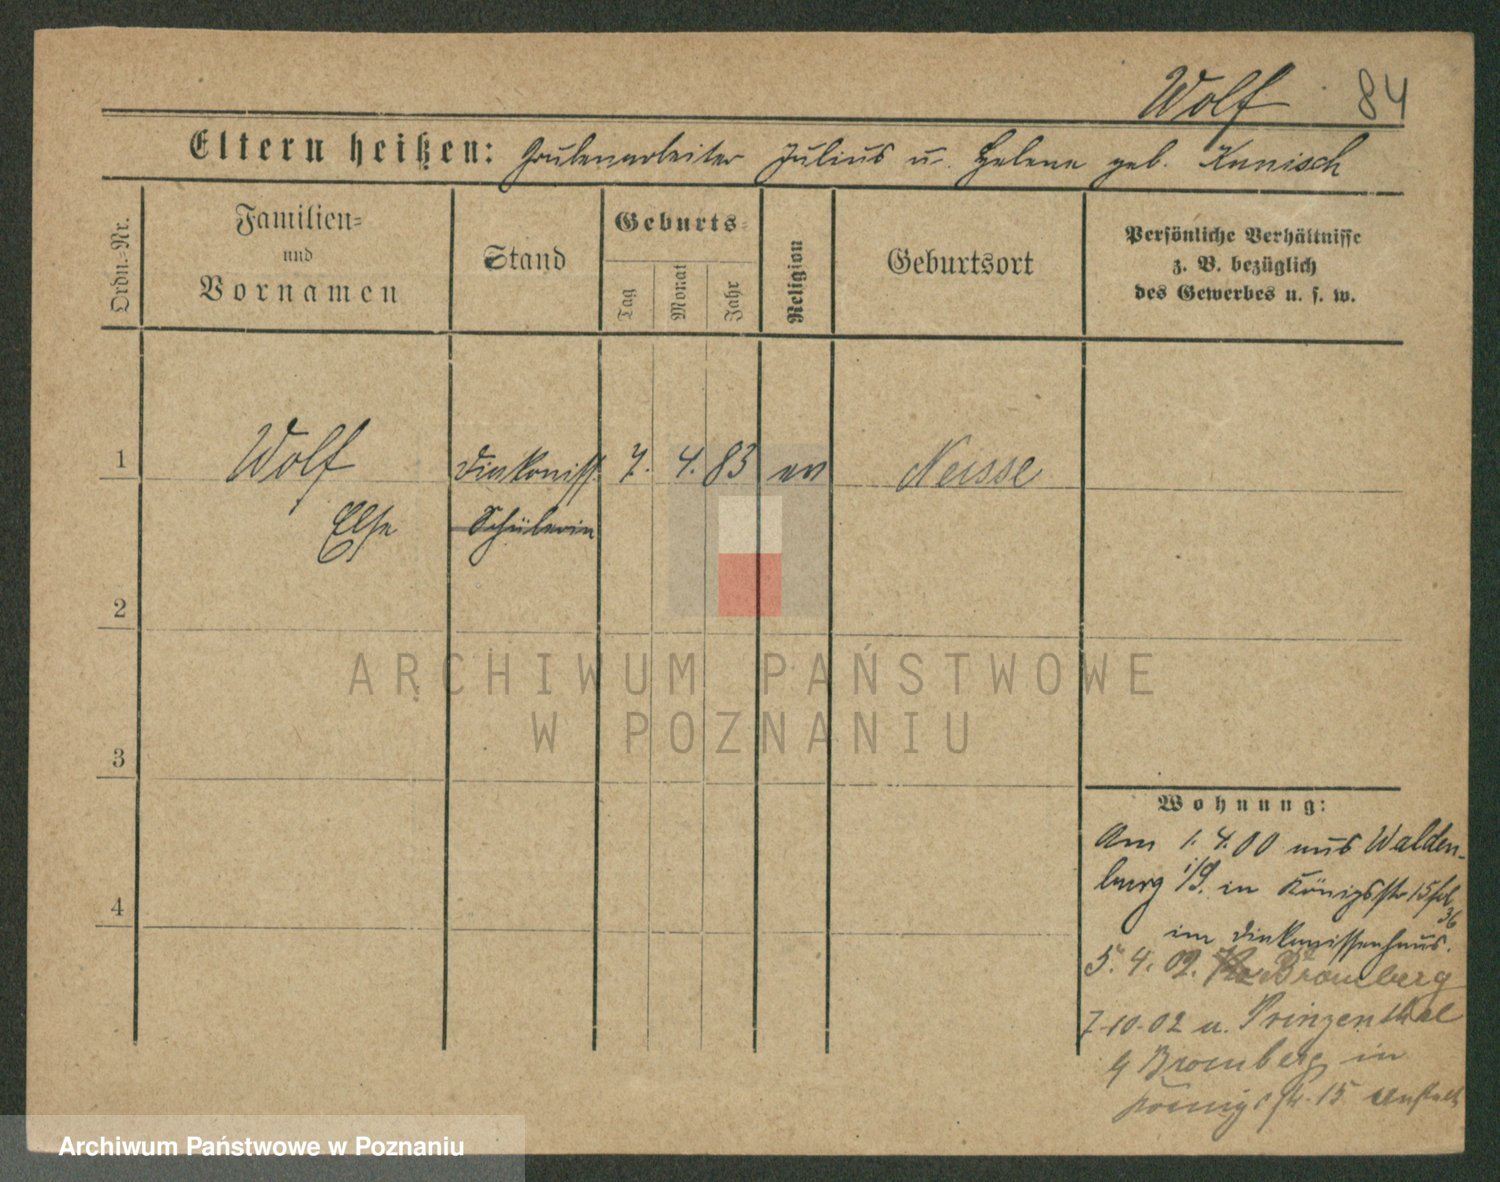 Wolf 84
Eltern heißen: Grubenarbeiter Julius u. Helene geb. Kunisch
Ordn.-Nr.
Familien-
und
Vornamen
Stand
Geburts-
Tag
Monat
Jahr
Religion
Geburtsort
Persönliche Verhältnisse
z. B. bezüglich
des Gewerbes u. s. w.
1 Wolf Diakoniss. 7. 4. 83 ev Neisse
Else Schülerin
2
3
4
ARCHIWUM PAŃSTWOWE
W POZNANIU
Wohnung:
Am 1.4.00 aus Walden-
burg i/S. in Königsstr 15
im Diakonissenhaus.
5. 4. 02. Bromberg
7-10-02 u. Prinzenthal
Bromberg in
Königstr. 15
Archiwum Państwowe w Poznaniu